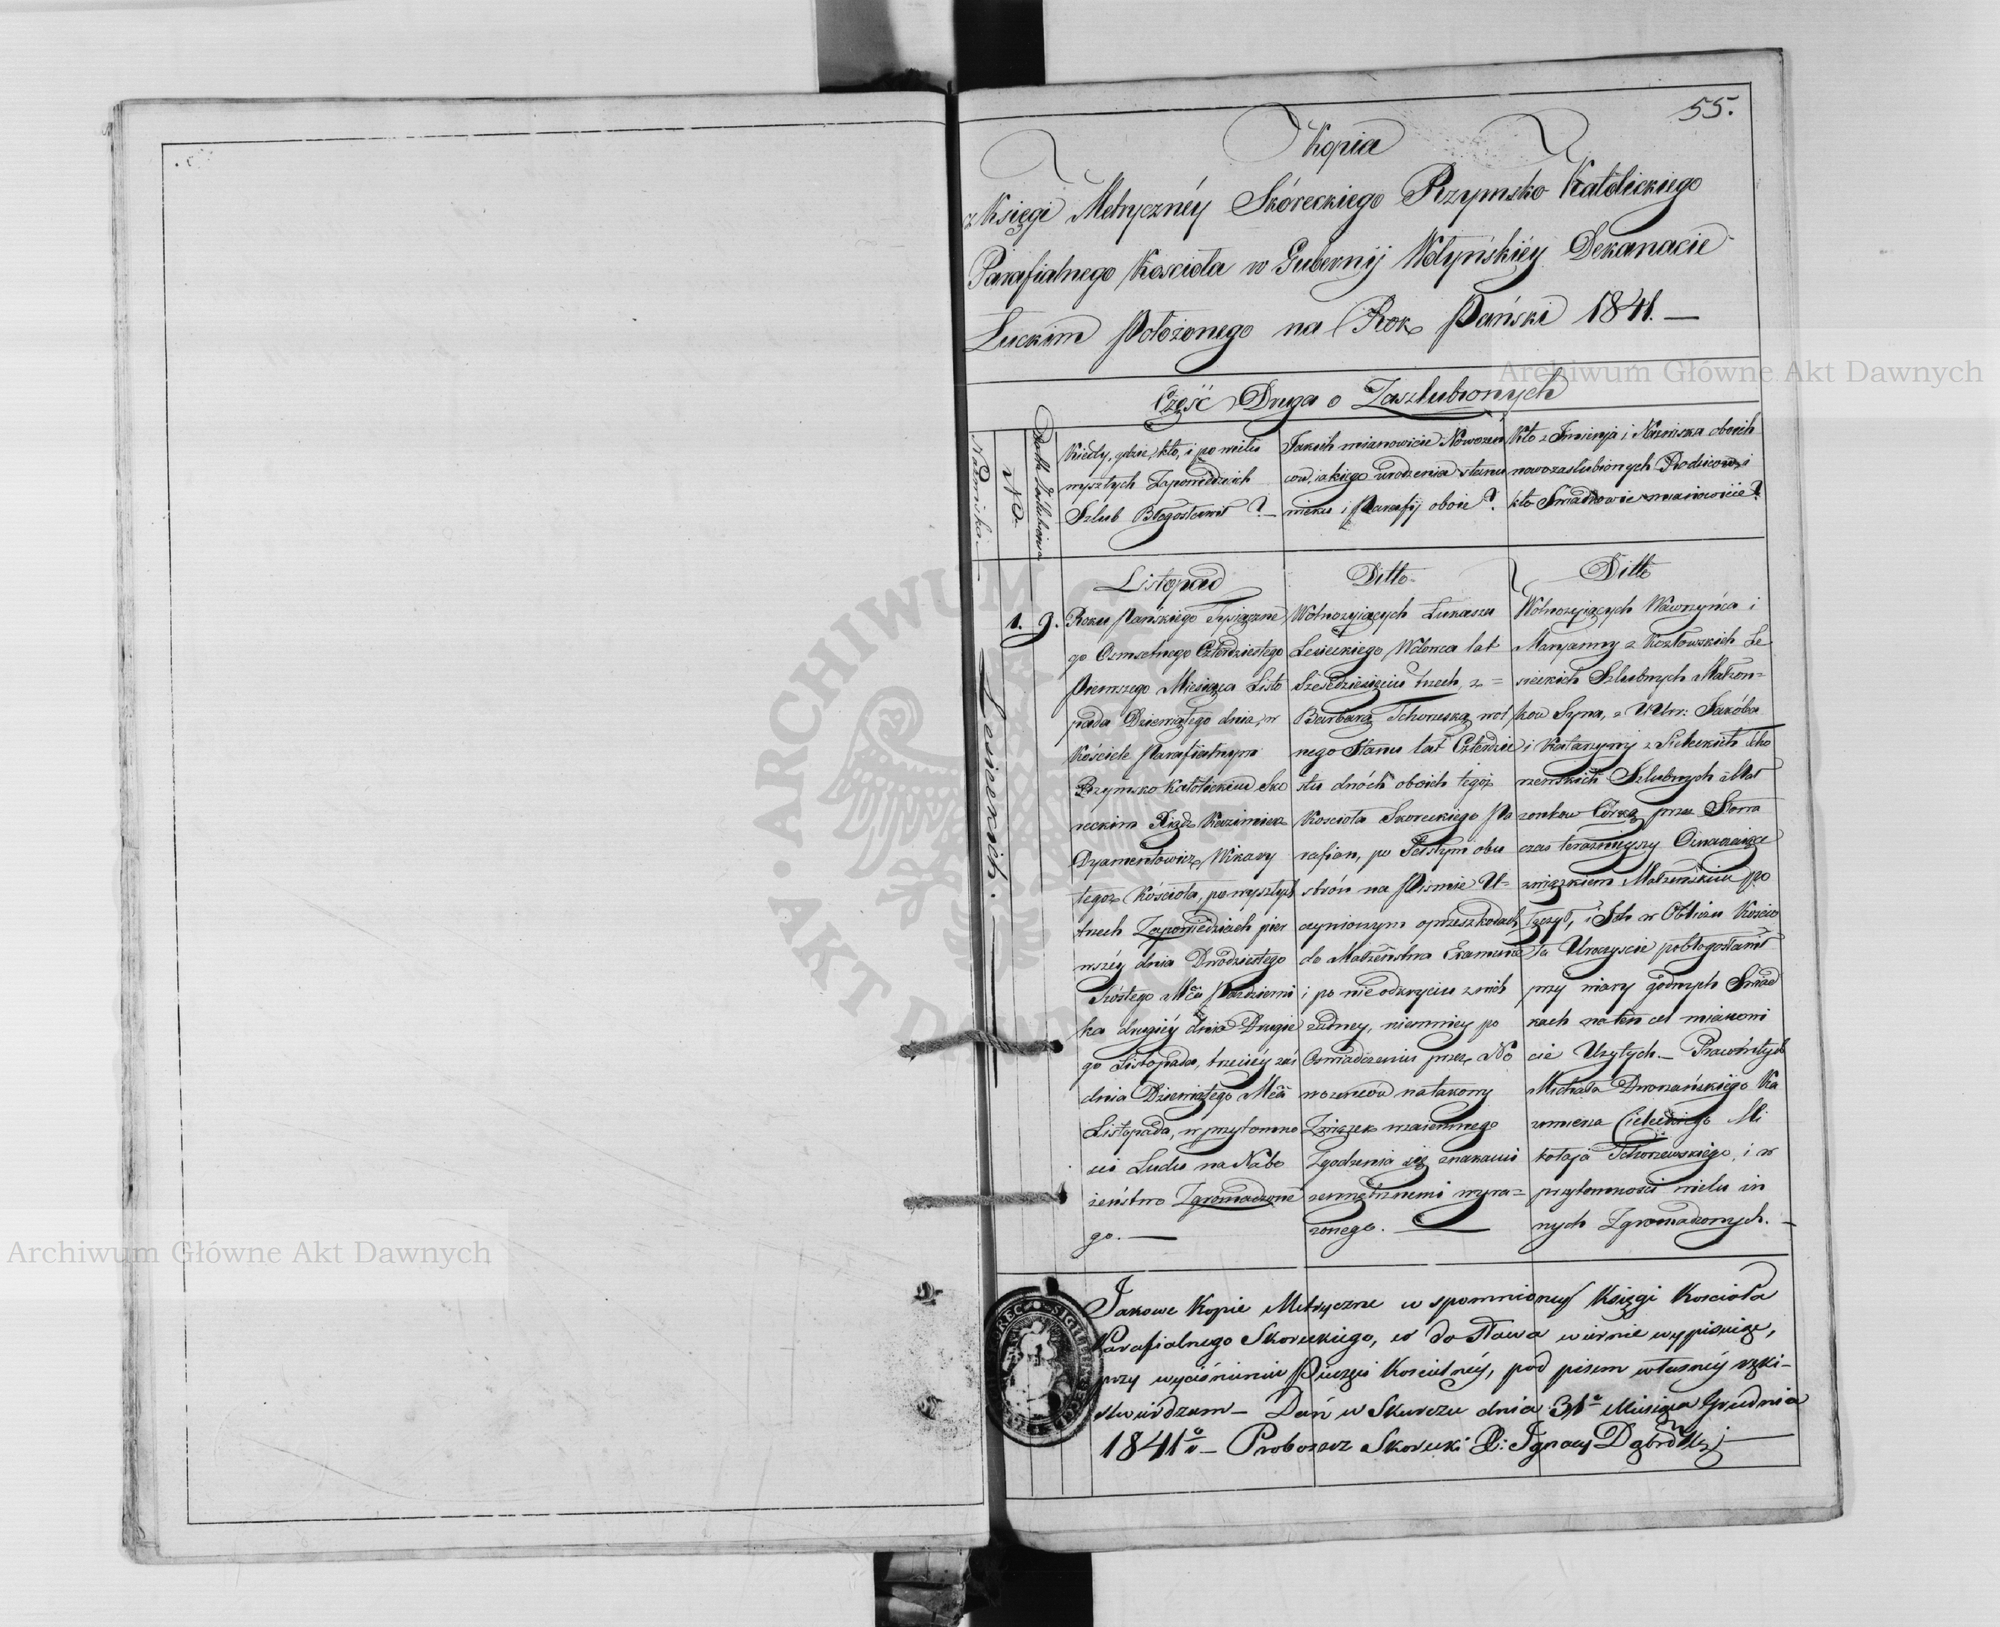 55.
Kopia
z Księgi Metrycznéy Skóreckiego Rzymsko Katolickiego
Parafialnego Kościoła w Gubernij Wołyńskiéy Dekanacie
Łuckim Położonego na Rok Pański 1841.—
Część Druga o Zaszlubionych
Nazwiska
No.
Kiedy, gdzie, kto, i po wielu
wyszłych Zapowiedziach
Szlub Błogosławił ?—
Jakich mianowicie Nowożeń
ców, jakiego urodzenia stanu
wieku i Parafij oboie ?
Kto z Imienia i Nazwiska oboich
nowozaślubionych Rodiców, i
kto Świadkowie mianowicie ?
Lesieckich.
1. 9.
Listopad
Roku Pańskiego Tysiączne
go Osmsetnego Czterdziestego
Pierwszego Miesiąca Listo
pada Dziewiątego dnia, w
Kościele Parafialnym
Rzymsko Katolickim Sko
reckim Xiądz Kazimierz
Dyamentowicz Wikary
tegoż Kościoła, po wyszłych
trzech Zapowiedziach pier
wszéy dnia Dwódziestego
szóstego Mca Pazdzierni
ka drugiéy dnia Drugie
go Listopada, trzeciéy zaś
dnia Dziewiątego Mca
Listopada, w przytomno
ści Ludu na Nabo
żeństwo Zgromadzone
go.—
Ditto.
Wolnożyjących Łukasza
Lesieckiego Wdowca lat
Sześćdziesięciu trzech, z =
Barbarą Tchorzeską wol
nego Stanu lat Czterdzie
stu dwóch oboich tegoż
Kościoła Skoreckiego Pa
rafian, po Ścisłym obu
strón na Piśmie U=
czynionym o przeszkodach
do Małżeństwa Examinie
i po nieodkryciu z nich
żadney, niemniey po
Oswiadczeniu przez No
wożeńców na takowy
Związek wzaiemnego
Zgodzenia się znakami
zewnętrznemi wyra=
żonego.—
Ditto
Wolnożyjących Wawrzyńca i
Maryanny z Kozłowskich Le
sieckich Szlubnych Małżon=
ków Syna, z Jakóba
i Katarzyny z Tcho
rzewskich Szlubnych Mał
żonków Córką, przez Słowa
czas teraźnieyszy Oznaczaiące
związkiem Małżeńskim po
łączył, i Ich w Obliczu Kościo
ła Uroczyscie pobłogosławił
przy wiary godnych Świad
kach na ten cel mianowi
cie Użytych.— Pracowitych
Michała Dworzańskiego Ka
zimierza Cieleckiego Mi
kołaja Tchorzewskiego, i w
przytomności wielu in
nych Zgromadzonych.—
Jakowe Kopie Metryczne w spomnioney Księgi Kościoła
Parafialnego Skoreckiego, w do słowa wiernie wypisuiąc,
przy wyciśnieniu Pieczęci Kościelnéy, pod pisem własnéy ręki—
stwierdzam— Dań w Skurczu dnia 31º Miesiąca Grudnia
1841º r.— Proboszcz Skorecki X: Ignacy Dąbrowski
Archiwum Główne Akt Dawnych
Archiwum Główne Akt Dawnych